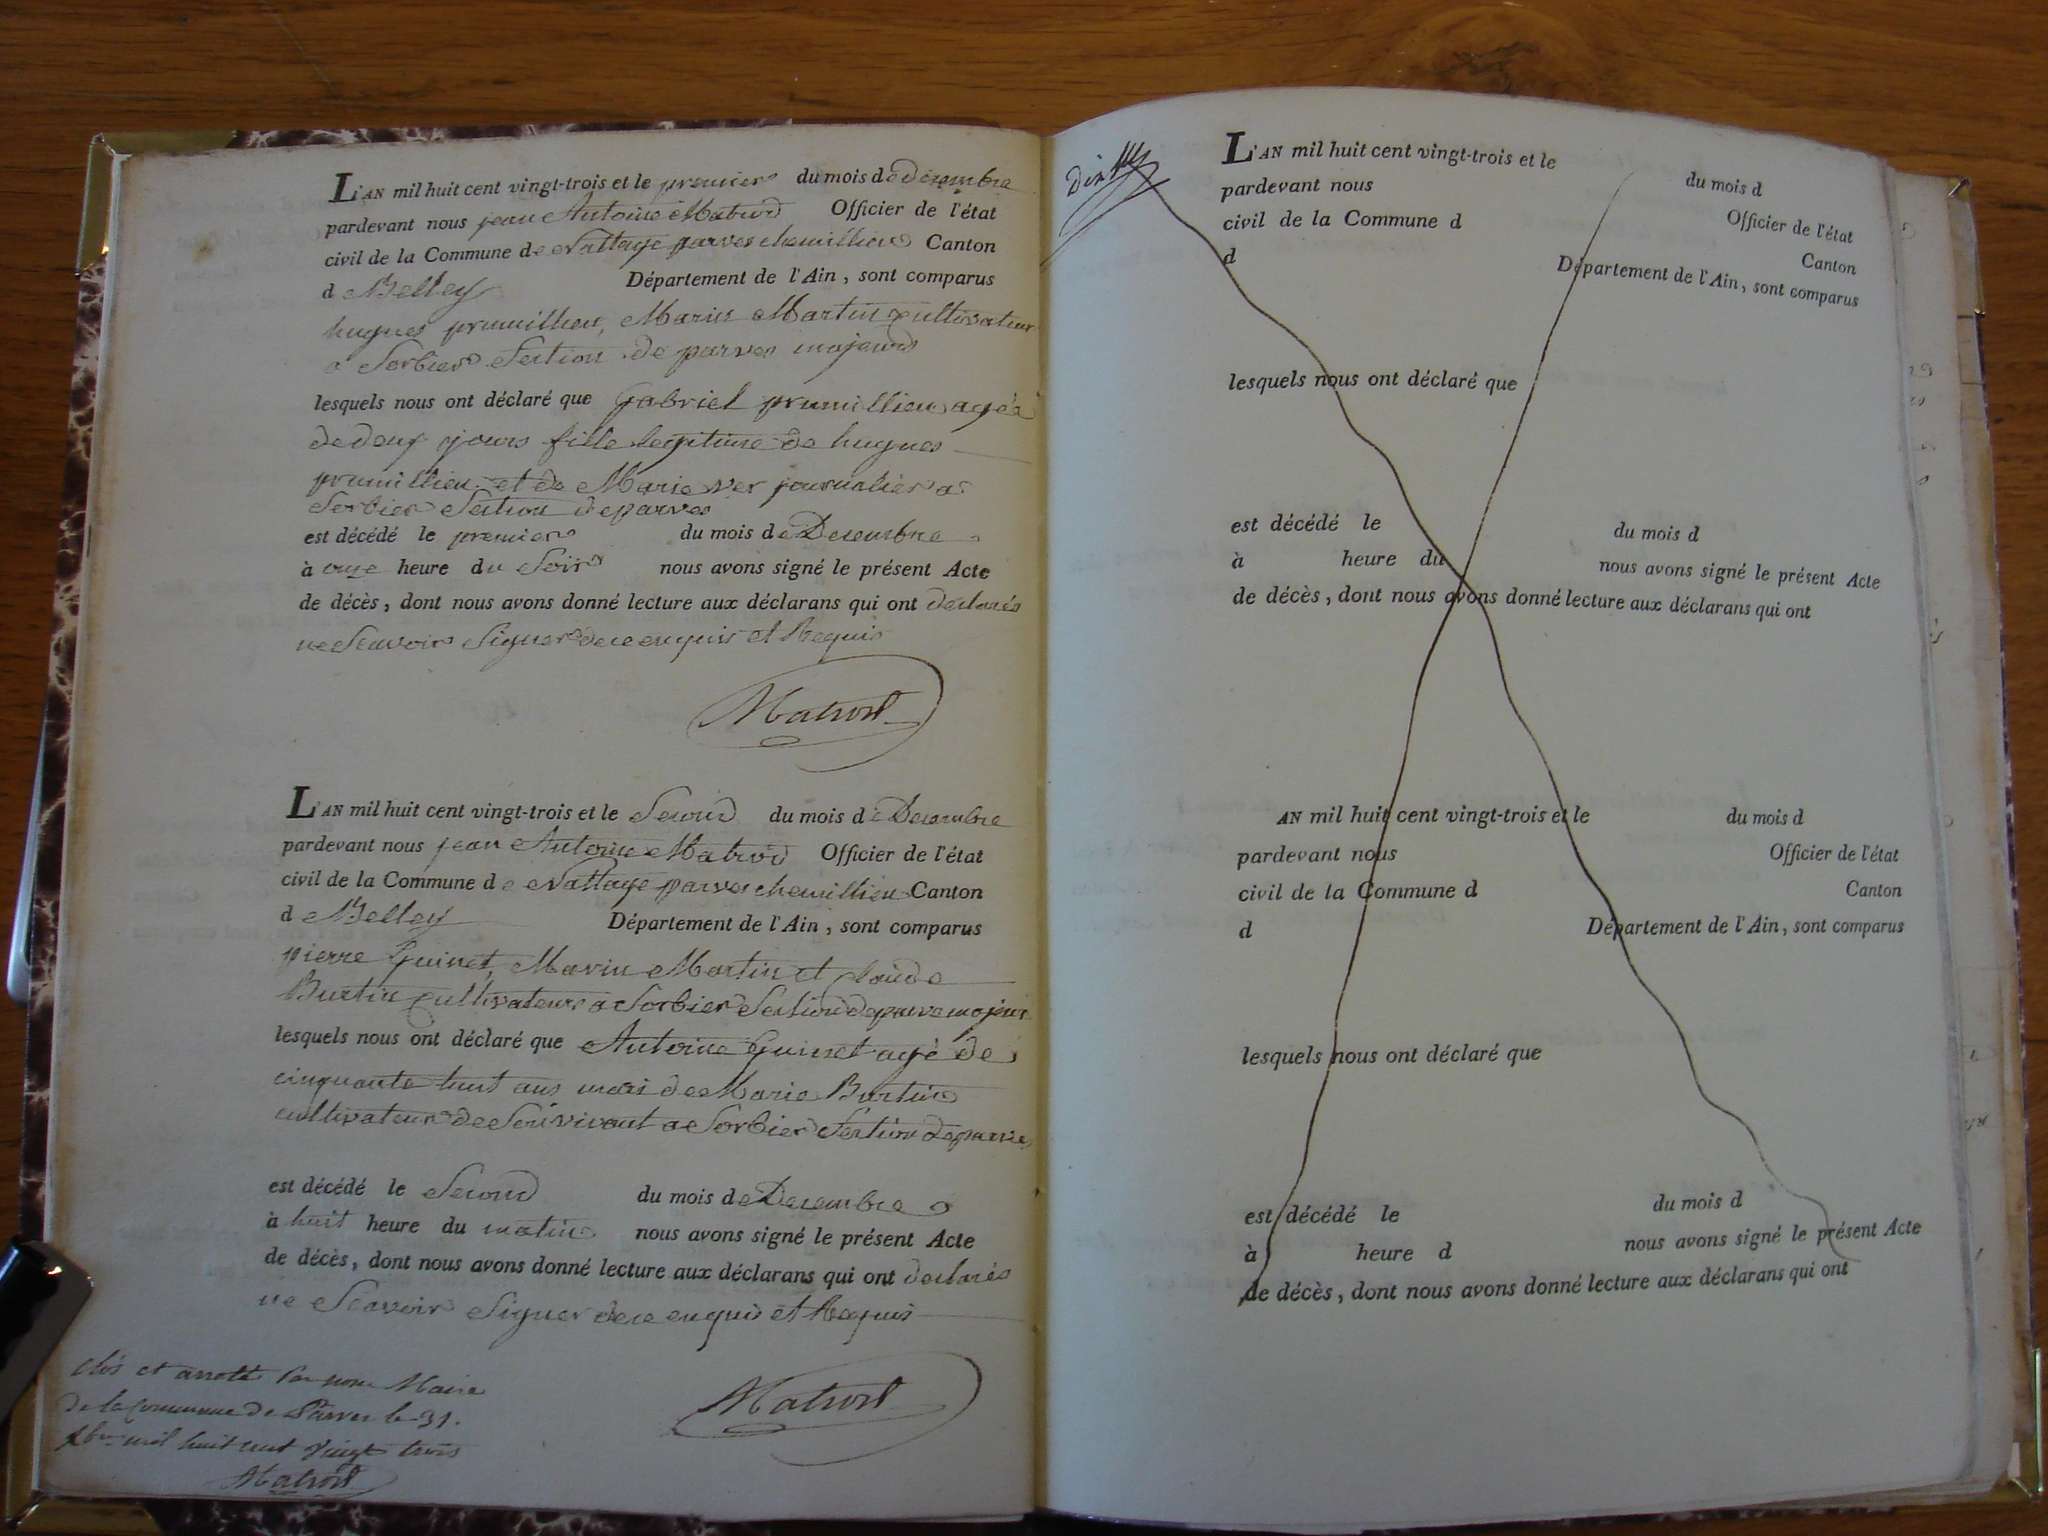 L'AN mil huit cent vingt-trois et le premier du mois de décembre
pardevant nous jean Antoine Matrod Officier de l'état
civil de la Commune de Nattage parves chemillieu Canton
d Belley Département de l'Ain, sont comparus
hugues prumillieu, Marin Martin cultivateur
a Sorbier Section de parves majeurs
lesquels nous ont déclaré que Gabriel prumillieu agée
de deux jours fille legitime de hugues
prumillieu et de Marie Ver journalier a
Sorbier Section de parves
est décédé le premier du mois de Decembre
à une heure du Soir nous avons signé le présent Acte
de décès, dont nous avons donné lecture aux déclarans qui ont déclarés
ne Scavoir Signer de ce enquis et Requis
Matrod
L'AN mil huit cent vingt-trois et le Second du mois de Decembre
pardevant nous jean Antoine Matrod Officier de l'état
civil de la Commune de Nattage parves chemillieu Canton
d Belley Département de l'Ain, sont comparus
pierre Guinet, Marin Martin et Claude
Burtin cultivateurs a Sorbier Section de parve majeur
lesquels nous ont déclaré que Antoine Guinet agé de
cinquante huit ans mari de Marie Burtin
cultivateur de Son vivant a Sorbier Section de parve
est décédé le Second du mois de Decembre
à huit heure du matin nous avons signé le présent Acte
de décès, dont nous avons donné lecture aux déclarans qui ont declarés
ne Scavoir Signer de ce enquis et Requis
Matrod
clos et arreté par nous Maire
de la commune de Parves le 31.
Xbre mil huit cent vingt trois
Matrod
L'AN mil huit cent vingt-trois et le du mois d
pardevant nous Officier de l'état
civil de la Commune d Canton
d Département de l'Ain, sont comparus
lesquels nous ont déclaré que
est décédé le du mois d
à heure du nous avons signé le présent Acte
de décès, dont nous avons donné lecture aux déclarans qui ont
AN mil huit cent vingt-trois et le du mois d
pardevant nous Officier de l'état
civil de la Commune d Canton
d Département de l'Ain, sont comparus
lesquels nous ont déclaré que
est décédé le du mois d
à heure d nous avons signé le présent Acte
de décès, dont nous avons donné lecture aux déclarans qui ont